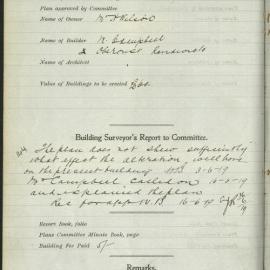 Plan approved by Committee
Name of Owner Mr Nelson
Name of Builder R. Campbell
&
Name of Architect
Value of Buildings to be erected £60.
Building Surveyor's Report to Committee.
The plan does not shew sufficiently
what effect the alteration will have
on the present building 3-6-19
Mr Campbell called on 16-6-19
and explained the plan
Rec for app 16-6-19
Report Book, folio
Plans Committee Minute Book, page
Building Fee Paid 5/-
Remarks.